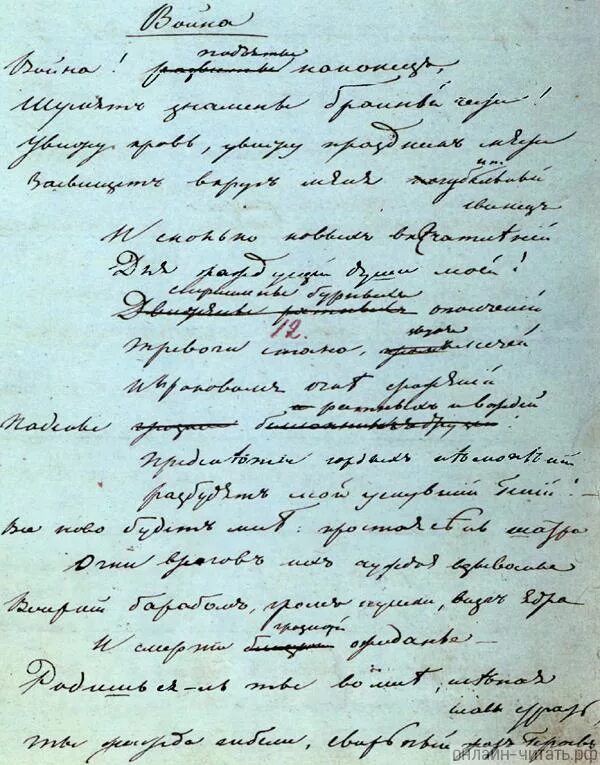 Война
подъяты
Война! развиты наконецъ,
Шумятъ знамены бранной чести!
Увижу кровь, увижу праздникъ мести
Засвищетъ вкругъ меня губительный
свинецъ
И сколько новыхъ впечатлѣній
Для жаждущей души моей!
стремленье бурныхъ
ополченій
12.
Тревоги стана, звукъ мечей
И въ роковомъ огнѣ сраженій
Паденье ратныхъ и вождей
Предметы гордыхъ пѣснопѣній
разбудятъ мой уснувшій Геній! —
Все ново будетъ мнѣ: простая сѣнь шатра
Огни враговъ ихъ чуждое взыванье
Вечерній барабанъ, громъ пушки, визгъ ядра
грозной
И смерти ожиданье —
Родишься-ль ты во мнѣ, слѣпая
славы страсть
ты жажда гибели, свирѣпый жаръ Героевъ
онлайн-читать.рф